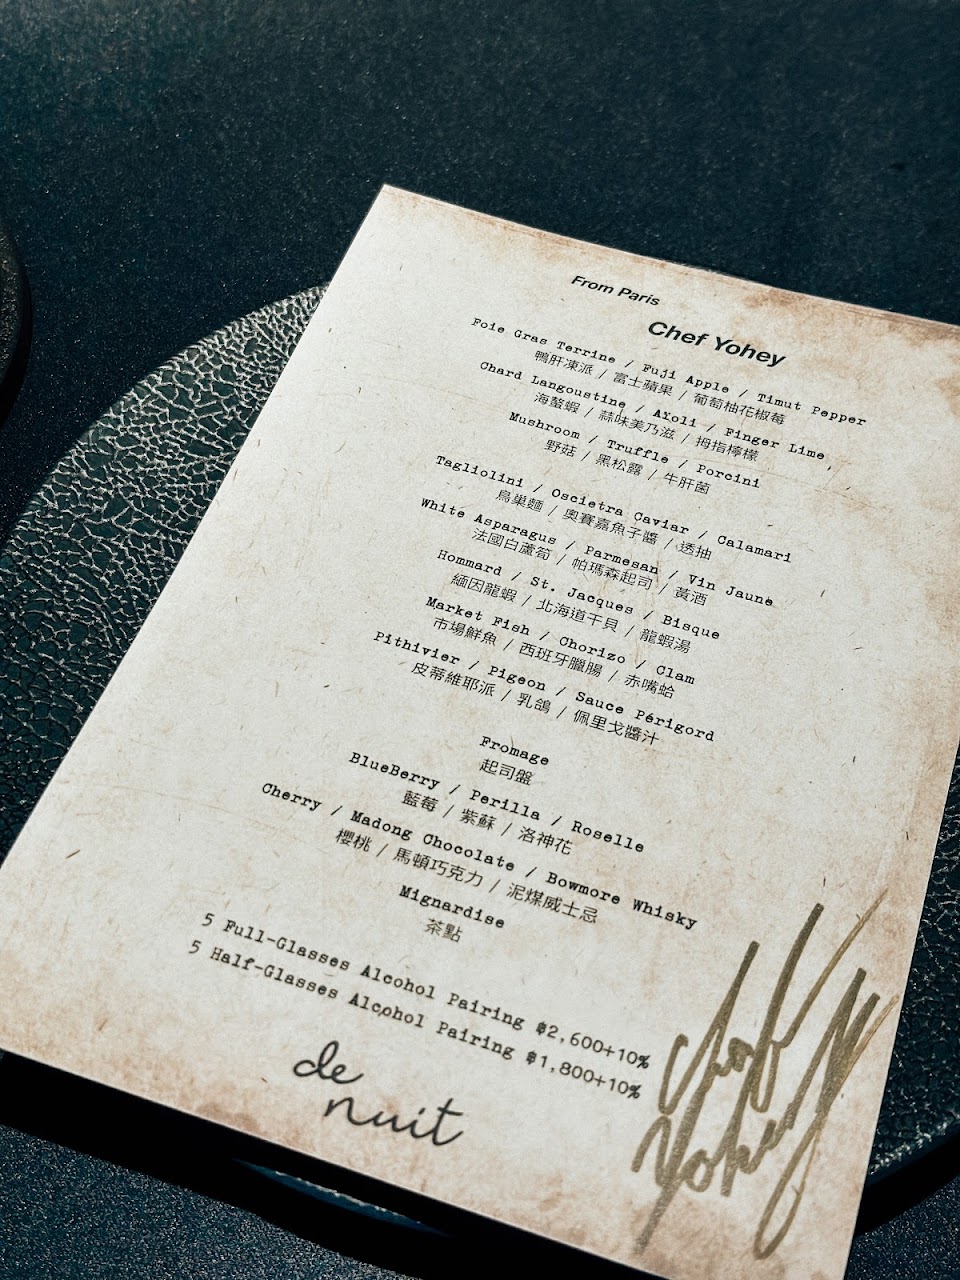 From Paris
Chef Yohey
Foie Gras Terrine / Fuji Apple / Timut Pepper
鴨肝凍派 / 富士蘋果 / 葡萄柚花椒莓
Chard Langoustine / AYoli / Finger Lime
海螯蝦 / 蒜味美乃滋 / 拇指檸檬
Mushroom / Truffle / Porcini
野菇 / 黑松露 / 牛肝菌
Tagliolini / Oscietra Caviar / Calamari
鳥巢麵 / 奧賽嘉魚子醬 / 透抽
White Asparagus / Parmesan / Vin Jaune
法國白蘆筍 / 帕瑪森起司 / 黃酒
Hommard / St. Jacques / Bisque
緬因龍蝦 / 北海道干貝 / 龍蝦湯
Market Fish / Chorizo / Clam
市場鮮魚 / 西班牙臘腸 / 赤嘴蛤
Pithivier / Pigeon / Sauce Périgord
皮蒂維耶派 / 乳鴿 / 佩里戈醬汁
Fromage
起司盤
BlueBerry / Perilla / Roselle
藍莓 / 紫蘇 / 洛神花
Cherry / Madong Chocolate / Bowmore Whisky
櫻桃 / 馬頓巧克力 / 泥煤威士忌
Mignardise
茶點
5 Full-Glasses Alcohol Pairing $2,600+10%
5 Half-Glasses Alcohol Pairing $1,800+10%
de
nuit
Chef
Yohey